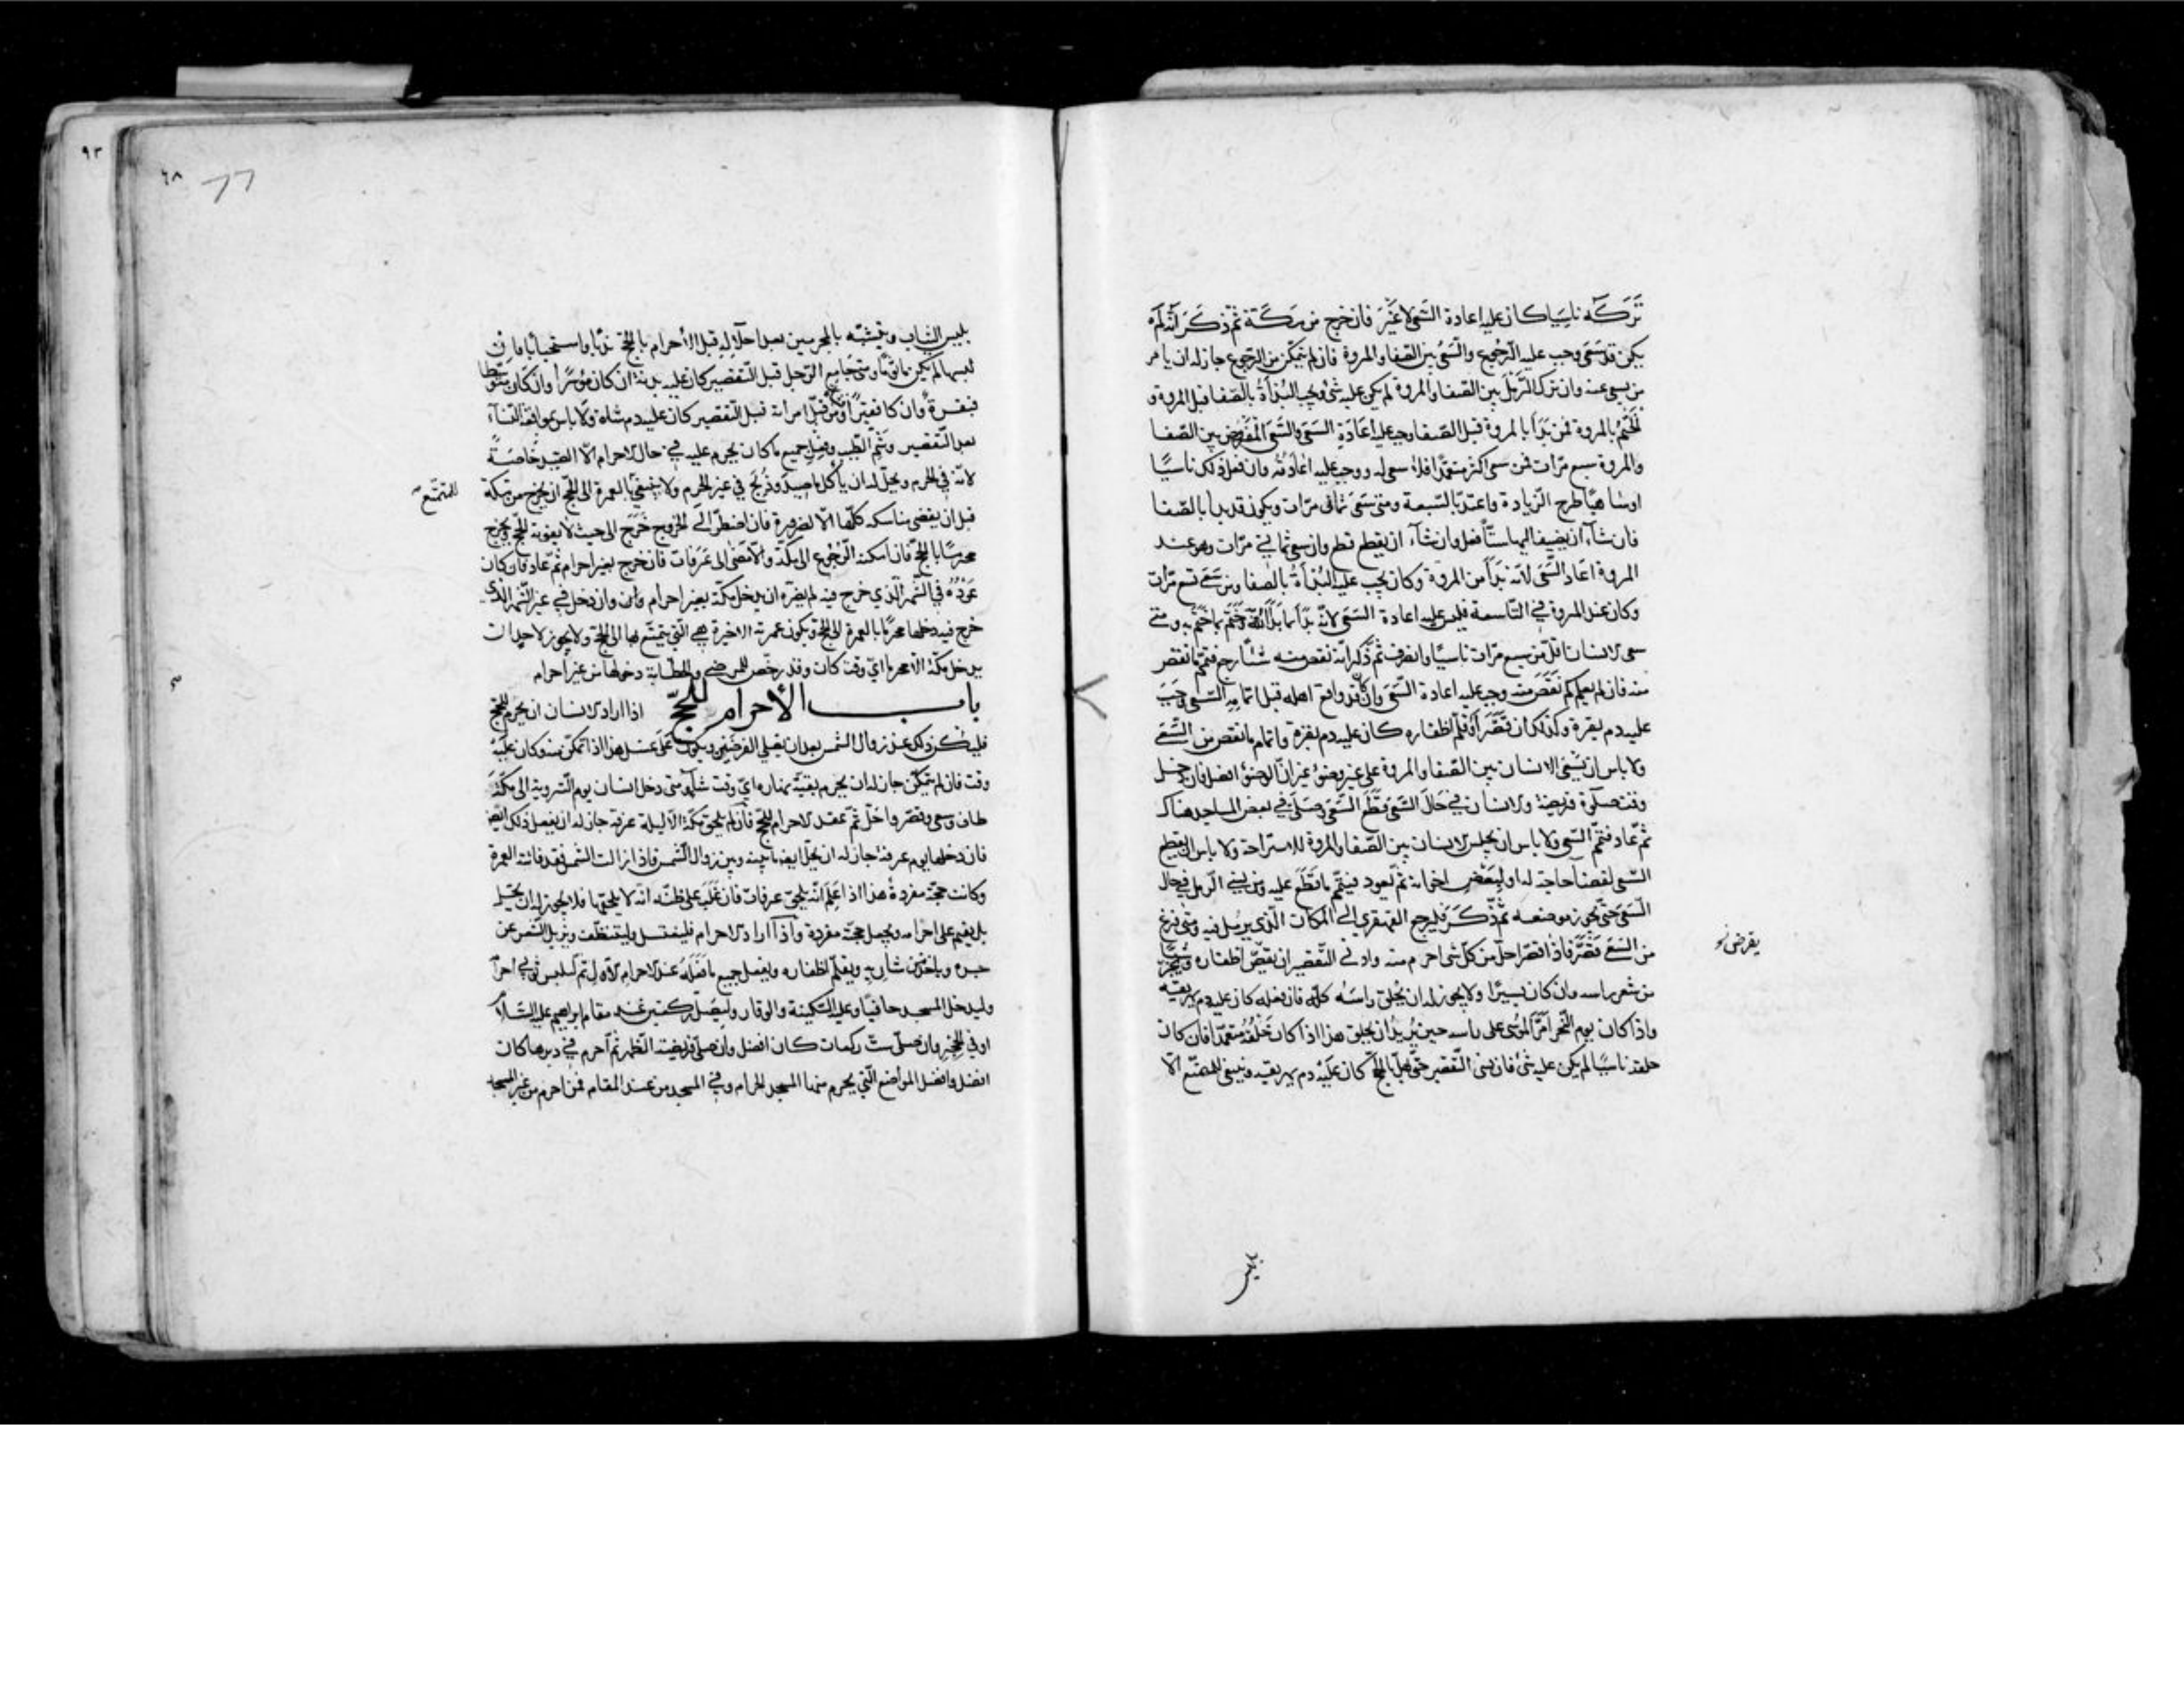 تَرَكَه ناسِيًا كان عليه اعادة السَّعى لا غَيْرَ فان خرج من مَكَّة ثمّ ذكَرَ انّه لم
يكن قد سَعَى وجب عليه الرّجُوع والسَّعْىُ بين الصّفا والمروة فان لم يتمكّن من الرّجوع جاز له ان يامر
من يسعى عنه وان ترك الرَّمَل بين الصّفا والمروة لم يكن عليه شئ ويجب البُدأةُ بالصّفا قبل المروة و
الخَتْمُ بالمروة فمن بَدَأ بالمروة قبل الصّفا وجب عليه اعَادَة السَعْى والسَّعْىُ المَفْرُوض بين الصّفا
والمروة سبع مرّات فمن سعى اكثر متعمّدًا فلا سعى له ووجب عليه اعَادَتُه وان فعل ذلك ناسيًا
او ساهيًا طرح الزّيادة واعتدّ بالسّبعة ومتى سَعَى ثمانى مرّات ويكون قد بدا بالصّفا
فان شآء ان يضيف اليها ستًّا فعل وان شآء ان يقطع قطع وان سعى ثمانى مرّات وهو عند
المروة اعَاد السَّعْىَ لانّه بَدَأ من المروة وكان يجب عليه البُدْأَةُ بالصّفا ومن سَعَى تسع مرّات
وكان عند المروة فى التّاسعة فليس عليه اعادة السَعْى لانّه بَدَأ بما بَدَأ اللّه به وخَتَم بما خَتَمَ به ومتى
سعى الانسان اقلّ من سبع مرّات ناسيًا وانصرف ثمّ ذكر انّه نقص منه شئًا رجع فتمّم ما نقص
منه فان لم يعلم كم نَقَصَ منه وجب عليه اعادة السَّعْى وان كان قد واقع اهله قبل اتمامِهِ السَّعى وجَبَ
عليه دم بقرة وكذلك ان قَصَّرَ او قَلَّمَ اظفاره كان عليه دم بقرة واتمام ما نقص من السَّعْى
ولا باس ان يسْعَى الانسان بين الصّفا والمروة على غير وضوءٍ غير انّ الوضوء افضل فان دخل
وقت صلوة فريضة والانسان فى حَال السَّعْى قَطَعَ السَّعْىَ وصَلّى فى بعض المساجد هناك
ثمّ عاد فتمّم السّعى ولا باس ان يجلس الانسان بين الصّفا والمروة للاستراحة ولا باس ان يقطع
السّعى لقضآءِ حاجة له او لبَعْضِ اخوانه ثمّ يَعود فيتمّم ما قَطَعَ عليه ومن نسى الرّمل فى حال
السَّعْىِ حتّى يجوز موضعه ثمّ ذكَرَ فليرجع القهقرى الى المكان الّذى يرمُل فيه ومتى فرغ
من السَعْى قَصَّرَ فاذا قصّر احلّ من كلّ شئ احرم منه وادنى التّقصير ان يقصّ اظفاره و يجزّ شيئًا
من شعر راسه وان كان يسيرًا ولا يجوز له ان يحْلق راسَهُ كلّه فان فعله كان عليه دم يهريقه
واذا كان يوم النَّحر امَرَّ المُوسَى على راسه حين يُريدُ ان يحلق هذا اذا كان حَلْقُهُ متعمّدًا فان كان
حلقه ناسيًا لم يكن عليه شئ فان نسى التّقصير حتّى يهلّ بالحجّ كان عليه دم يهريقه وينبغى للمتمتّع الّا
يقرض نو
٩٣
٦٨
يلبس الثياب ويتشبّه بالمحرمين بعد احلاله قبل الأحرام بالحجّ
لبسها لم يكن ماثومًا ومتى جَامع الرّجل قبل التّقصير كان عليه بدنة ان كان مُوسِرًا وان كان متوسّطًا
فبقرةً وان كان فقيرًا ومن قَبَّلَ امرأته قبل التّقصير كان عليه دم شاة ولا باس بمواقعة النّسآء
بعد التّقصير وشَمِّ الطّيب وفعل جميع ما كان يحرم عليه فى حال الاحرام الّا الصّيد خاصّةً
لانّه فى الحرم ويحلّ له ان يأكل ما صِيدَ وذُبحَ فى غير الحَرم ولا ينبغى بالعمرة الى الحجّ ان يخرج من مكّة
للمتمتّع
قبل ان يقضى مناسكه كلّها الّا لضرورة فان اضطرّ الى الخروج خَرَج الى حيث لا يفوته الحجّ ويخرج
محرمًا بالحجّ فان امكنه الرّجوع الى مكّة والّا مَضَى الى عَرَفات فان خرج بغير احرام ثمّ عاد فان كان
عَوْدُهُ فى الشّهر الّذى خرج فيه لم يضرّه ان يدخل مكّة بغير احرام وان دخل فى غير الشّهر الذى
خرج فيه دخلها محرمًا بالعمرة الى الحجّ ويكون عمرته الاخيرة هى الّتى يتمتّع بها الى الحجّ ولا يجوز لاحد ان
يدخل مكّة الّا محرمًا اىّ وقت كان وقد رخّص للمرضى والحطّابة دخولها من غير احرام
باب الأحرام للحجّ اذا اراد الانسان ان يحرم للحجّ
فليكن ذلك عند زوال الشمس بعد ان يصلى الفرضين هذا اذا تمكّن منه وكان عليه
وقت فان لم يتمكّن جاز له ان يحرم بقيّة نهاره اىّ وقت شآء ومتى دخل انسان يوم التّروية الى مكّة
طاف وسعى وقصّر واحَلّ ثمّ عقد الاحرام للحجّ فان لم يلحق مكّة الّا ليلة عرفة جاز له ان يفعل ذلك ايضًا
فان دخلها يوم عرفة جاز له ان يحلّ ايضًا ما بينه وبين زوال الشّمس فاذا زالت الشّمس فقد فاتته العمرة
وكانت حجّة مفردةً هذا اذا عَلِمَ انّه يلحق عرفات فان غَلَبَ على ظنّه انّه لا يلحقها فلا يجوز له ان يحلّ
بل يقيم على احرامه ويجعل حجّة مفردة واذا اراد الاحرام فليغتسل وليتنظّف ويزيل الشّعر عن
جسده وياخذ من شاربه ويقلّم اظفاره ويفعل جميع ما فَعَلَه عند الاحرام الاوّل ثمّ ليلبس ثوبى احرامه
وليدخل المسجد حافيًا وعليه السّكينة والوقار وليصَلّ ركعتين عند مقام ابراهيم عليه السّلام
او فى الحِجْرِ وان صَلّى ستّ ركعات كان افضل وان صلّى فريضة الظّهر ثمّ احرم فى دبرها كان
افضل وافضل المواضع الّتى يحرم منها المسجد الحرام وفى المسجد من عند المقام فمن احرم من غير المسجد